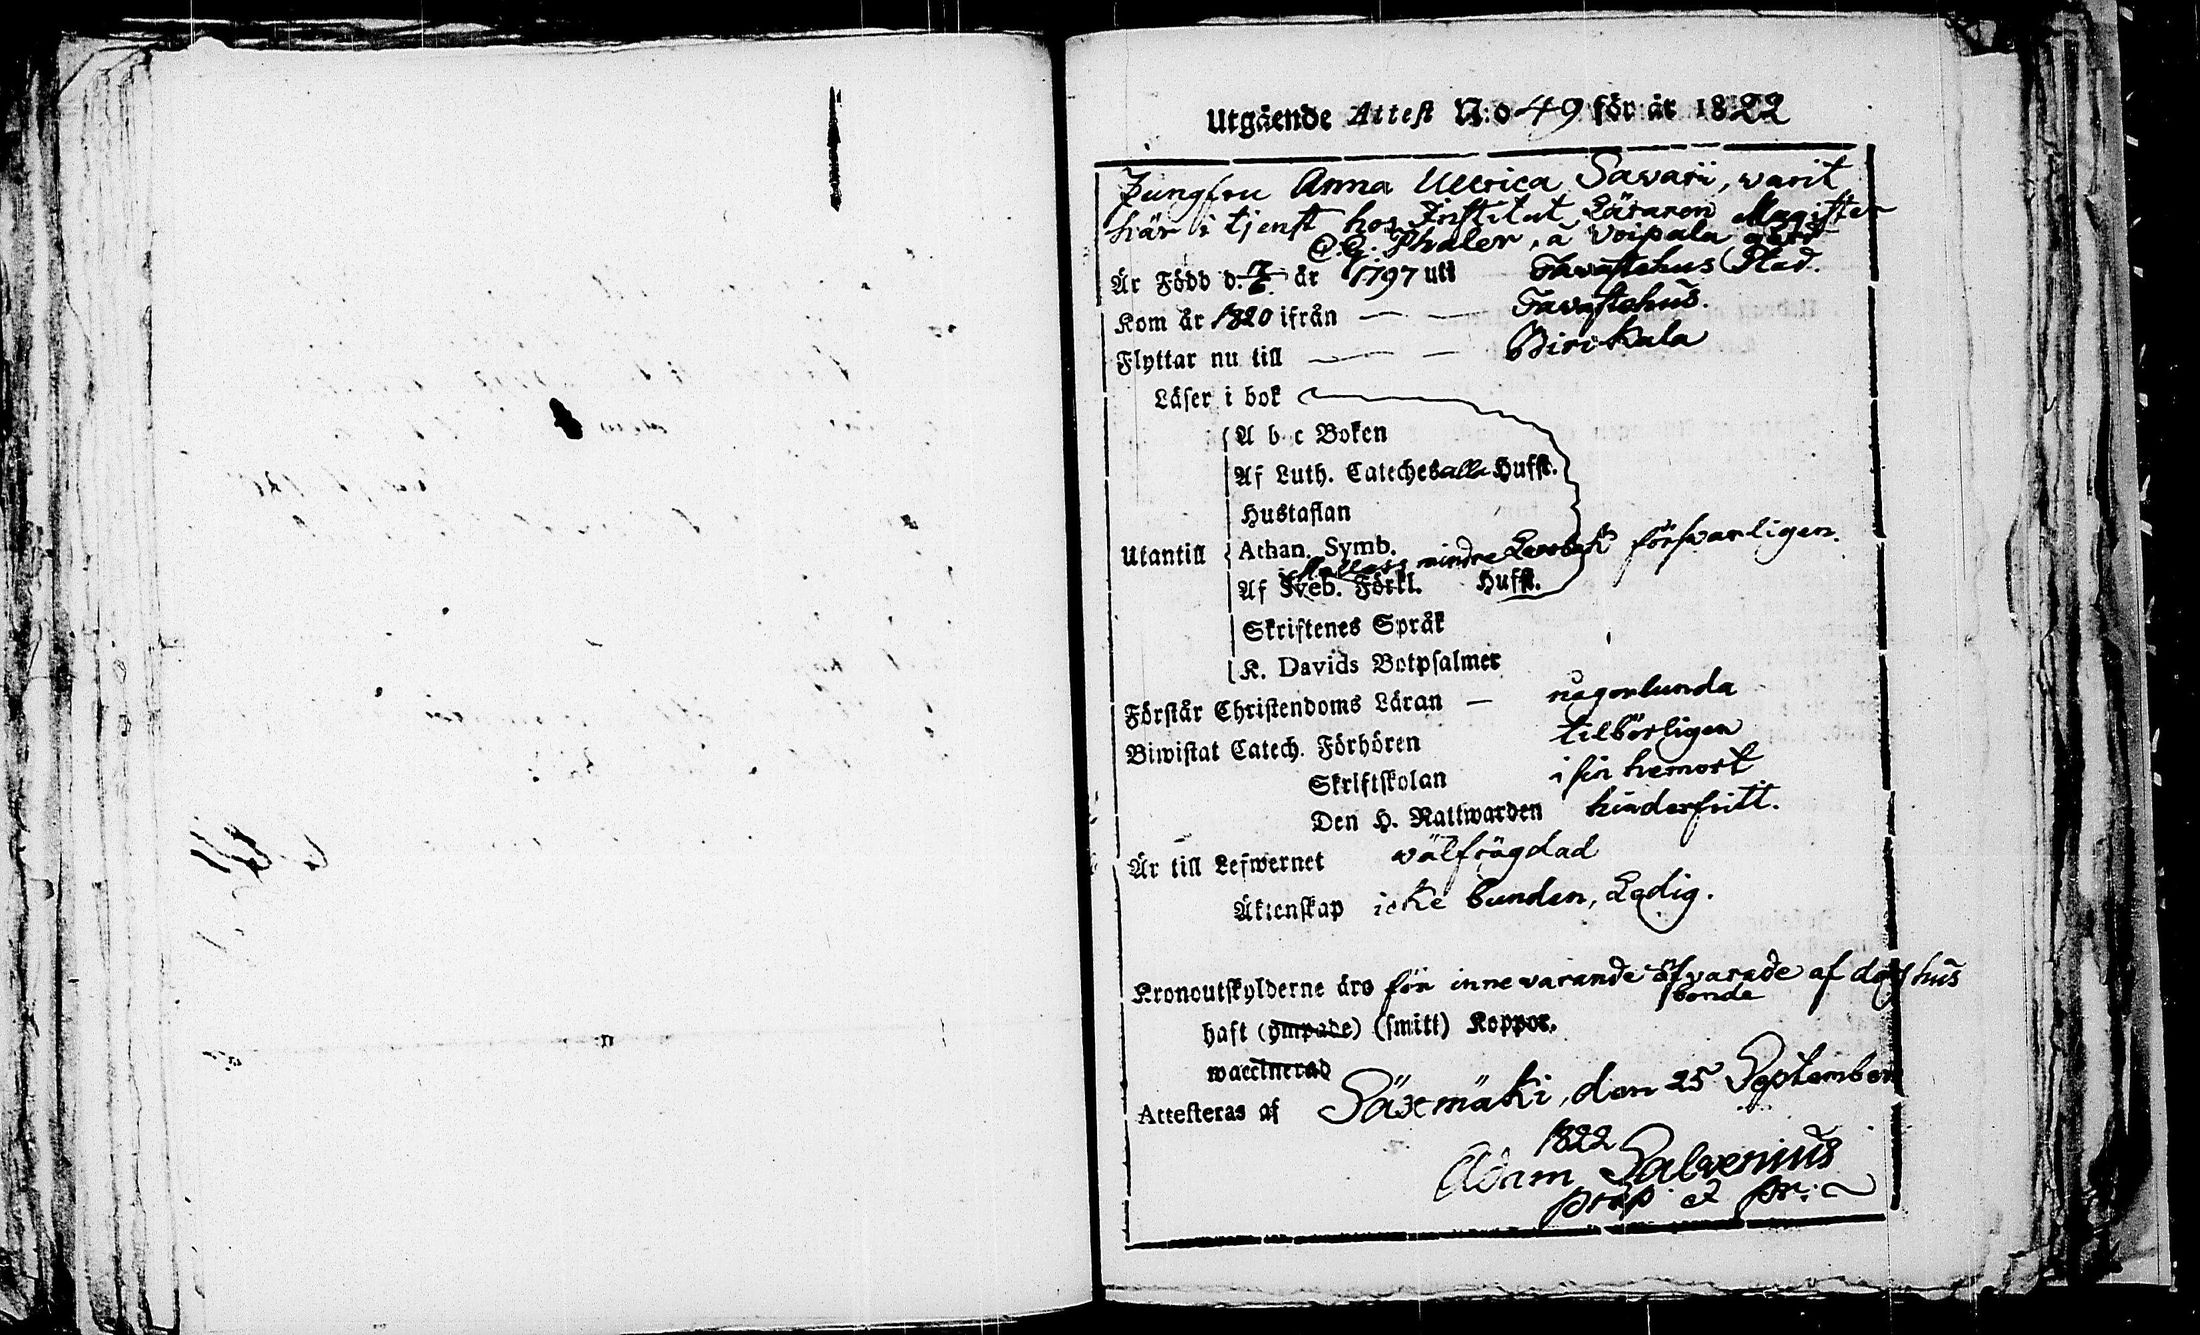 Utgående Attest N:o 49 för år 1822
Jungfru Anna Ullrica Savarii, warit
här i tjenst hos Institut Läraren Magister
C.G. Thaler, å Voipala gård
Är Född d. 7/6 år 1797 uti Tavastehus Stad.
Kom år 1820 ifrån — — Tavastehus.
Flyttar nu till — — Birikala
Läser i bok
A b c Boken
Af Luth. Cateches alla Hufst.
Hustaflan
Utantill Athan. Symb.
mindre Lärobok försvarligen.
Af Sveb. Förkl. Hufst.
Skriftenes Språk
K. Davids Botpsalmer
Förstår Christendoms Läran — någorlunda
Biwistat Catech. Förhören tilbörligen
Skriftskolan i sin hemort
Den H. Nattwarden hinderfritt.
Är till Lefwernet wälfrägdad
Äktenskap icke bunden, Ledig.
Kronoutskylderne äro för innevarande år svarade af dess hus
bonde
haft (ympade) (smitt) Koppor.
waccinerad
Attesteras af Säxmäki, den 25 September
1822
Adam Salvenius
prap et